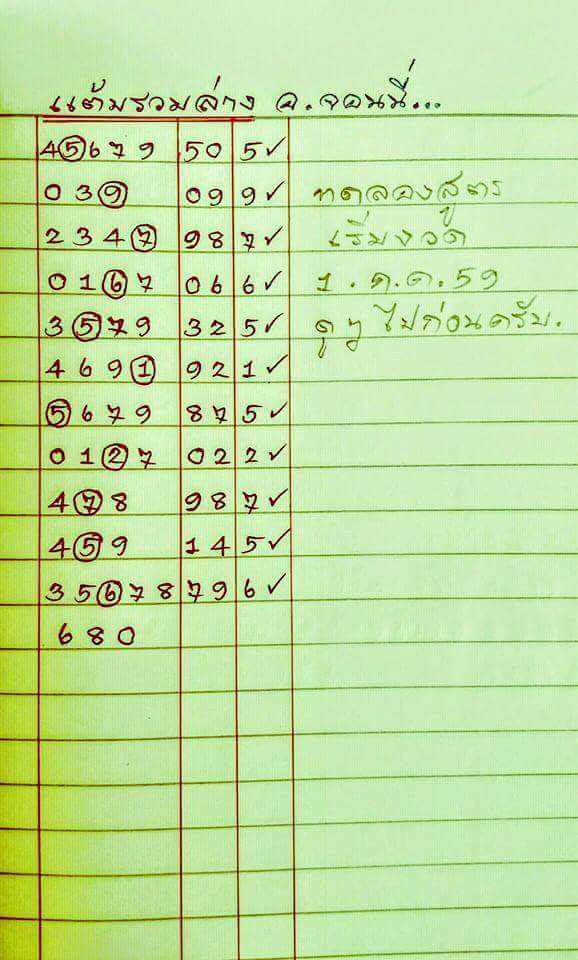 แต้มรวมล่าง อ.จอนนี่...
45679 50 5✓
039 09 9✓
2347 98 7✓
ทดลองสูตร
เริ่มงวด
0167 06 6✓
1.ต.ค.59
3579 32 5✓
ดูๆ ไปก่อนครับ.
4691 92 1✓
5679 87 5✓
0127 02 2✓
478 98 7✓
459 14 5✓
35678 79 6✓
680